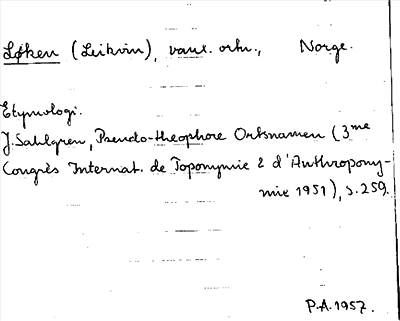 Løken (Leikvin), vanl. ortn., Norge.
Etymologi.
J. Sahlgren, Pseudo-theophore Ortsnamen (3me
Congrès Internat. de Toponymie & d'Anthropony-
mie 1951), s. 259.
P.A. 1957.